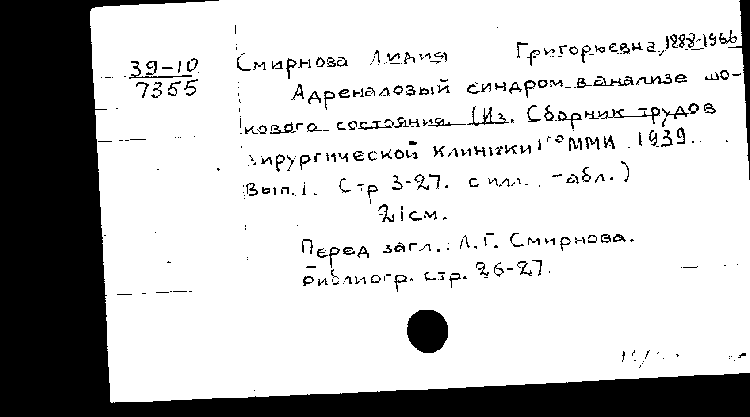 39-10
7355
Смирнова Лидия Григорьевна, 1888-1966
Адреналовый синдром в анализе шо-
кового состояния. (Из. Сборник трудов
хирургической клиники 1го ММИ. 1939.
Вып. 1. Стр 3-27. с илл. табл.)
21 см.
Перед загл.: Л.Г. Смирнова.
Библиогр. стр. 26-27.